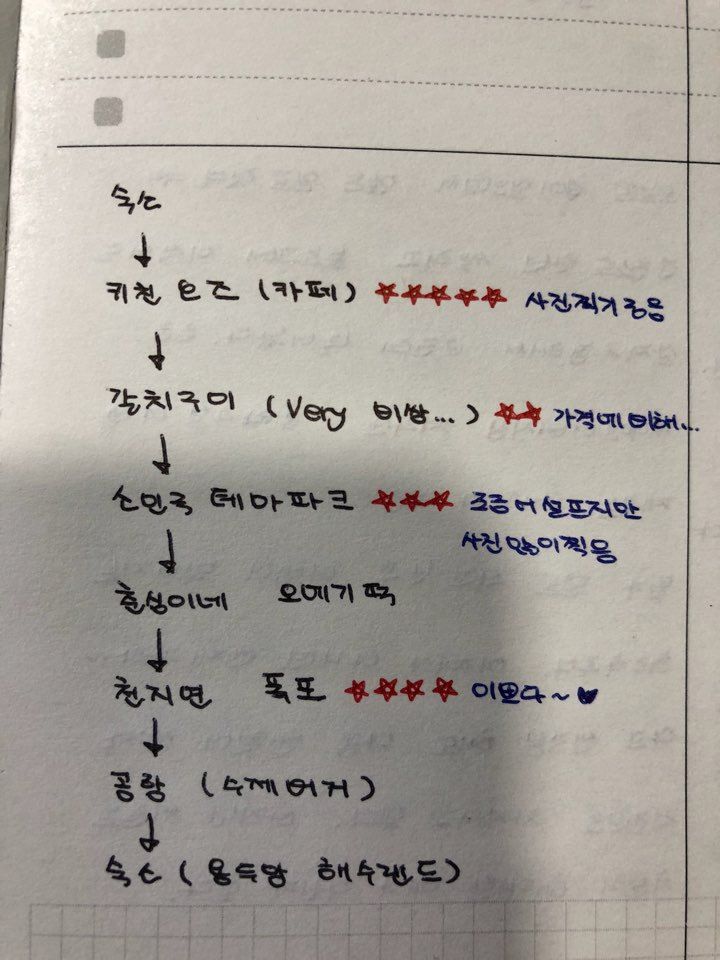 숙소
↓
키친 오즈 (카페) ☆☆☆☆☆ 사진찍기좋음
↓
갈치구이 (Very 비쌈...) ☆☆ 가격에비해...
↓
소인국 테마파크 ☆☆☆ 조금어설프지만
사진많이찍음
↓
춘심이네 오메기떡
↓
천지연 폭포 ☆☆☆☆ 이쁘다~♥
↓
공항 (수제버거)
↓
숙소 (용두암 해수랜드)